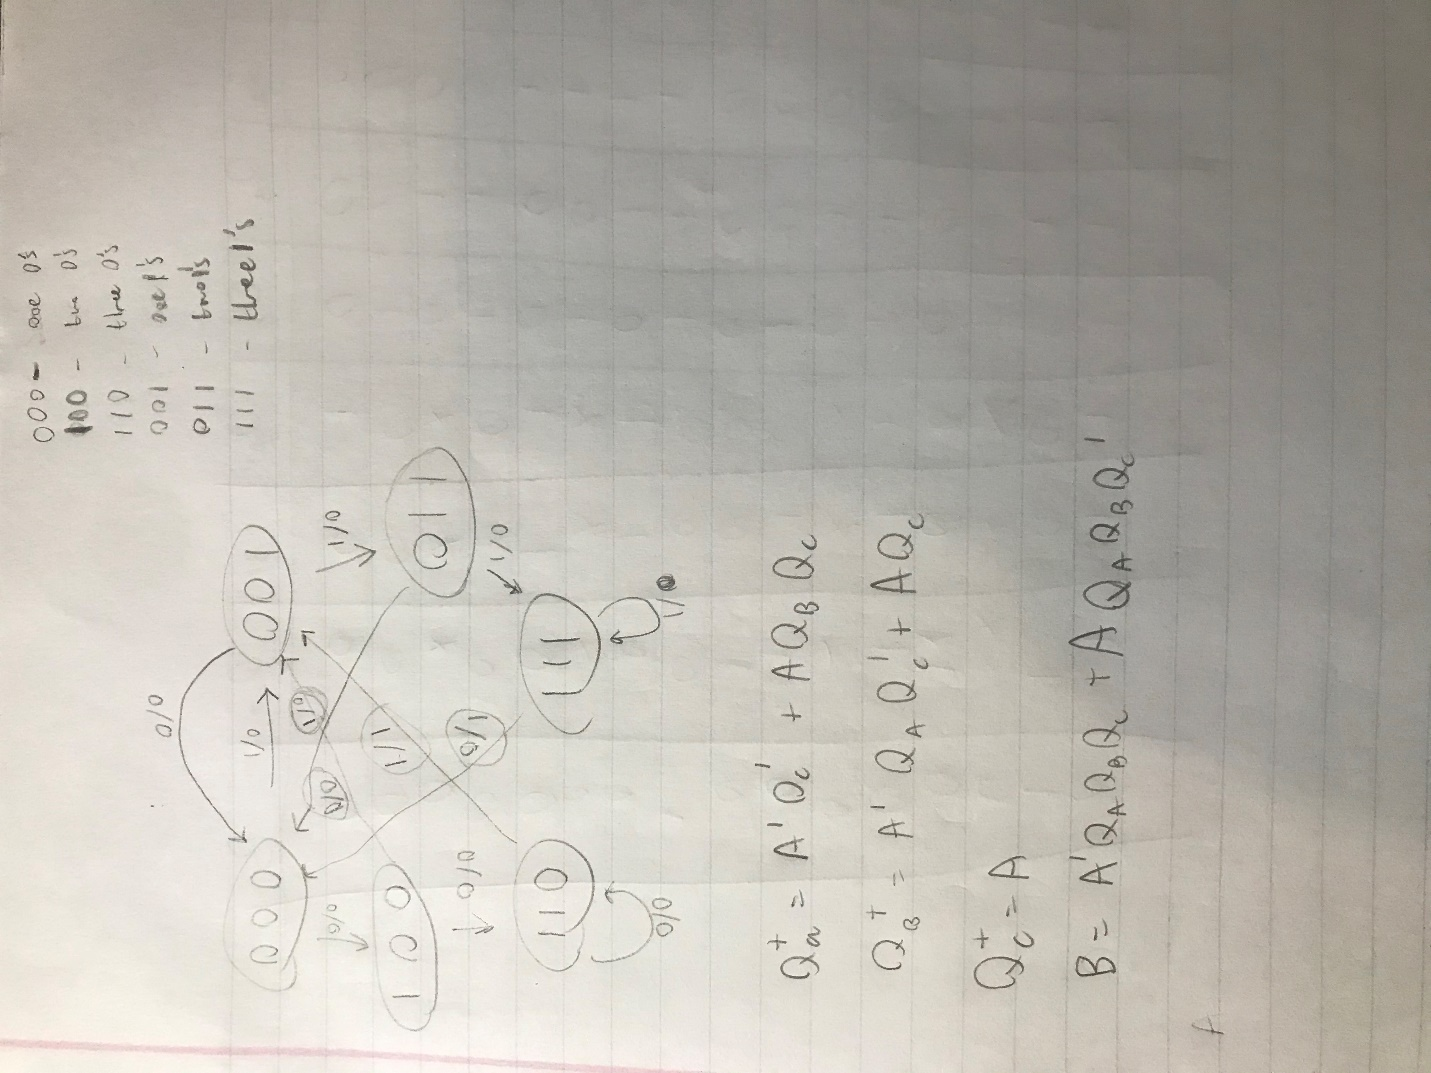 000 - one 0's
100 - two 0's
110 - three 0's
001 - one 1's
011 - two 1's
111 - three 1's
0/0
000
1/0
001
0/0
1/0
1/0
0/0
100
1/1
011
0/0
0/1
1/0
110
111
0/0
1/0
Qa+ = A'Qc' + AQBQc
QB+ = A'QAQc' + AQc
Qc+ = A
B = A'QAQBQc + AQAQBQc'
A